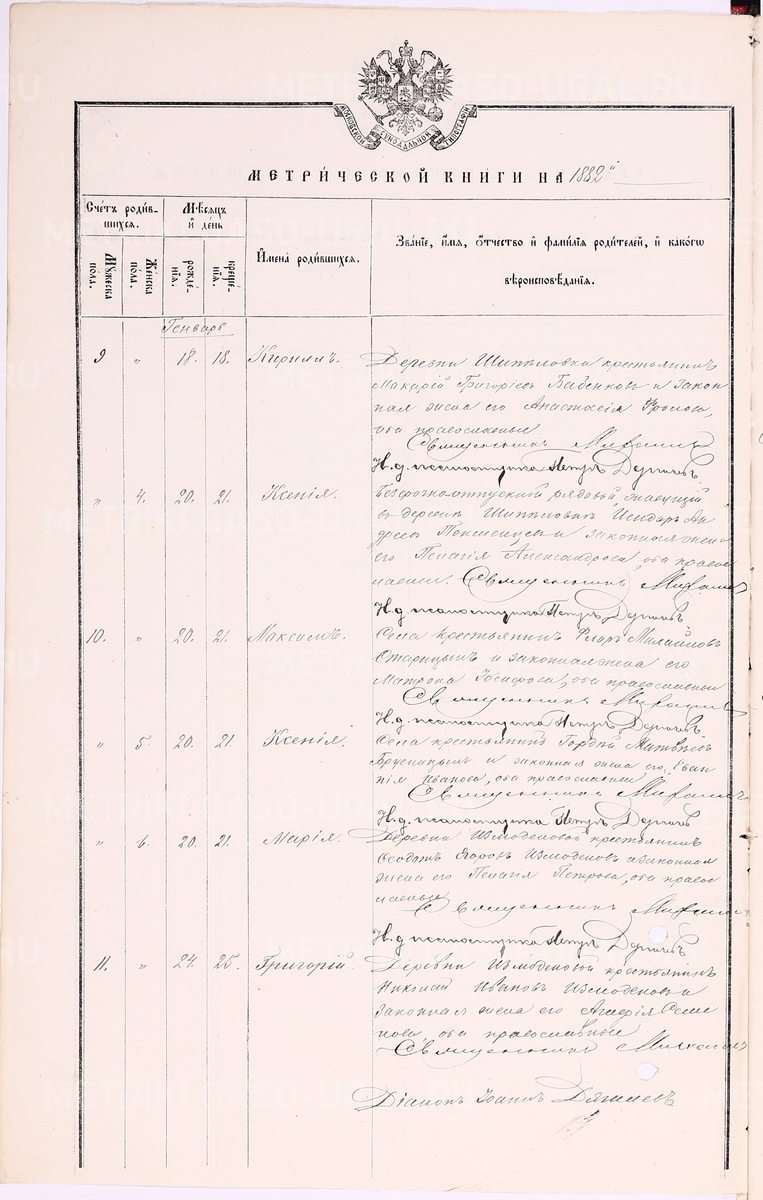 МОСКОВСКОЙ СѴНОДАЛЬНОЙ ТИПОГРАФІИ
МЕТРИ́ЧЕСКОЙ КНИГИ НА 1882й
Сче́тъ роди́в-
шихся.
Му́жеска по́ла.
Же́нска по́ла.
Мѣ́сяцъ и де́нь
рожде́-нїя.
креще́-нїя.
И҆мена̀ роди́вшихся.
Зва́нїе, и҆́мя, ѻ҆́тчество и҆ фами́лїя роди́телей, и҆ како́гѡ
вѣроисповѣ́данїя.
Генварь
9 „ 18. 18. Кириллъ. Деревни Шипѣловки крестьянинъ
Макарій Григоріевъ Бабенковъ и закон
ная жена его Анастасія Фролова,
оба православные
Священникъ
И. д. псаломщика Петръ
„ 4. 20. 21. Ксенія. Безсрочноотпускной рядовой, живущій
въ деревнѣ Шипѣловкѣ, Ан
дреевъ и законная жена
его Пелагія Александрова, оба право
славные. Священникъ
И. д. псаломщика Петръ
10. „ 20. 21. Максимъ. Села крестьянинъ Флоръ Михайловъ
Старицынъ и законная жена его
Матрона, оба православные
Священникъ
И. д. псаломщика Петръ
„ 5. 20. 21. Ксенія. Села крестьянинъ Гордѣй Матвѣевъ
Брусницынъ и законная жена его
Иванова, оба православные
Священникъ
И. д. псаломщика Петръ
„ 6. 20. 21. Марія. Деревни Измоденовой крестьянинъ
Ѳеодотъ Егоровъ Измоденовъ и законная
жена его Пелагія Петрова, оба право
славные
Священникъ
И. д. псаломщика Петръ
11. „ 24. 25. Григорій. Деревни Измоденовой крестьянинъ
Николай Ивановъ Измоденовъ и
законная жена его Семе
нова, оба православные
Священникъ
Діаконъ Іоаннъ Дягилевъ